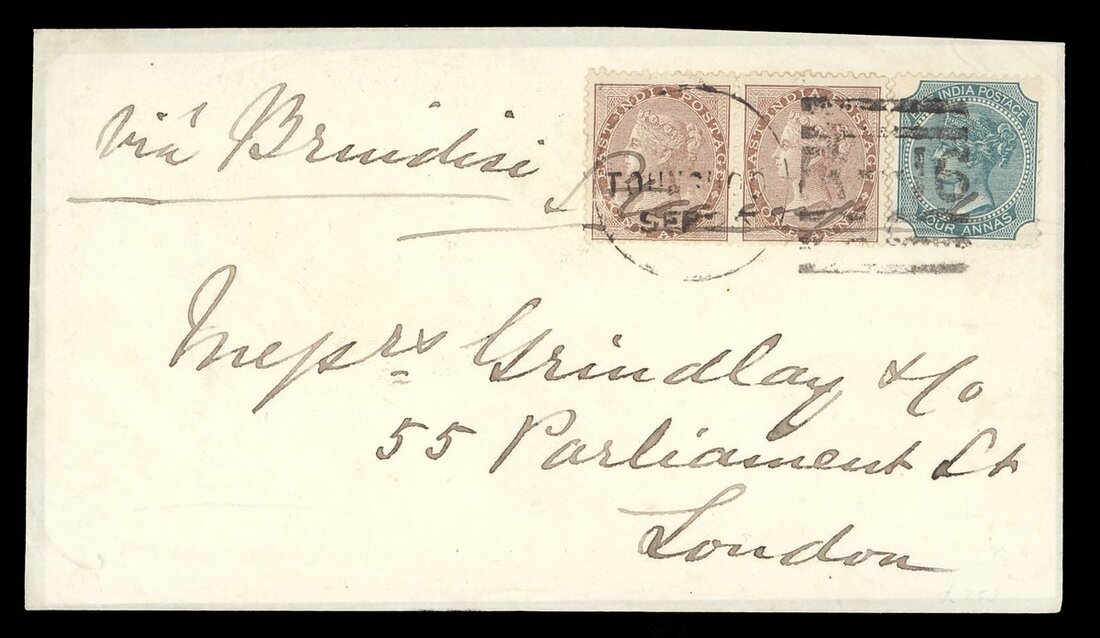 via Brindisi
EAST INDIA POSTAGE
EAST INDIA POSTAGE
ONE ANNA
INDIA POSTAGE
FOUR ANNAS
SEP
Messrs Grindlay & Co
55 Parliament St
London